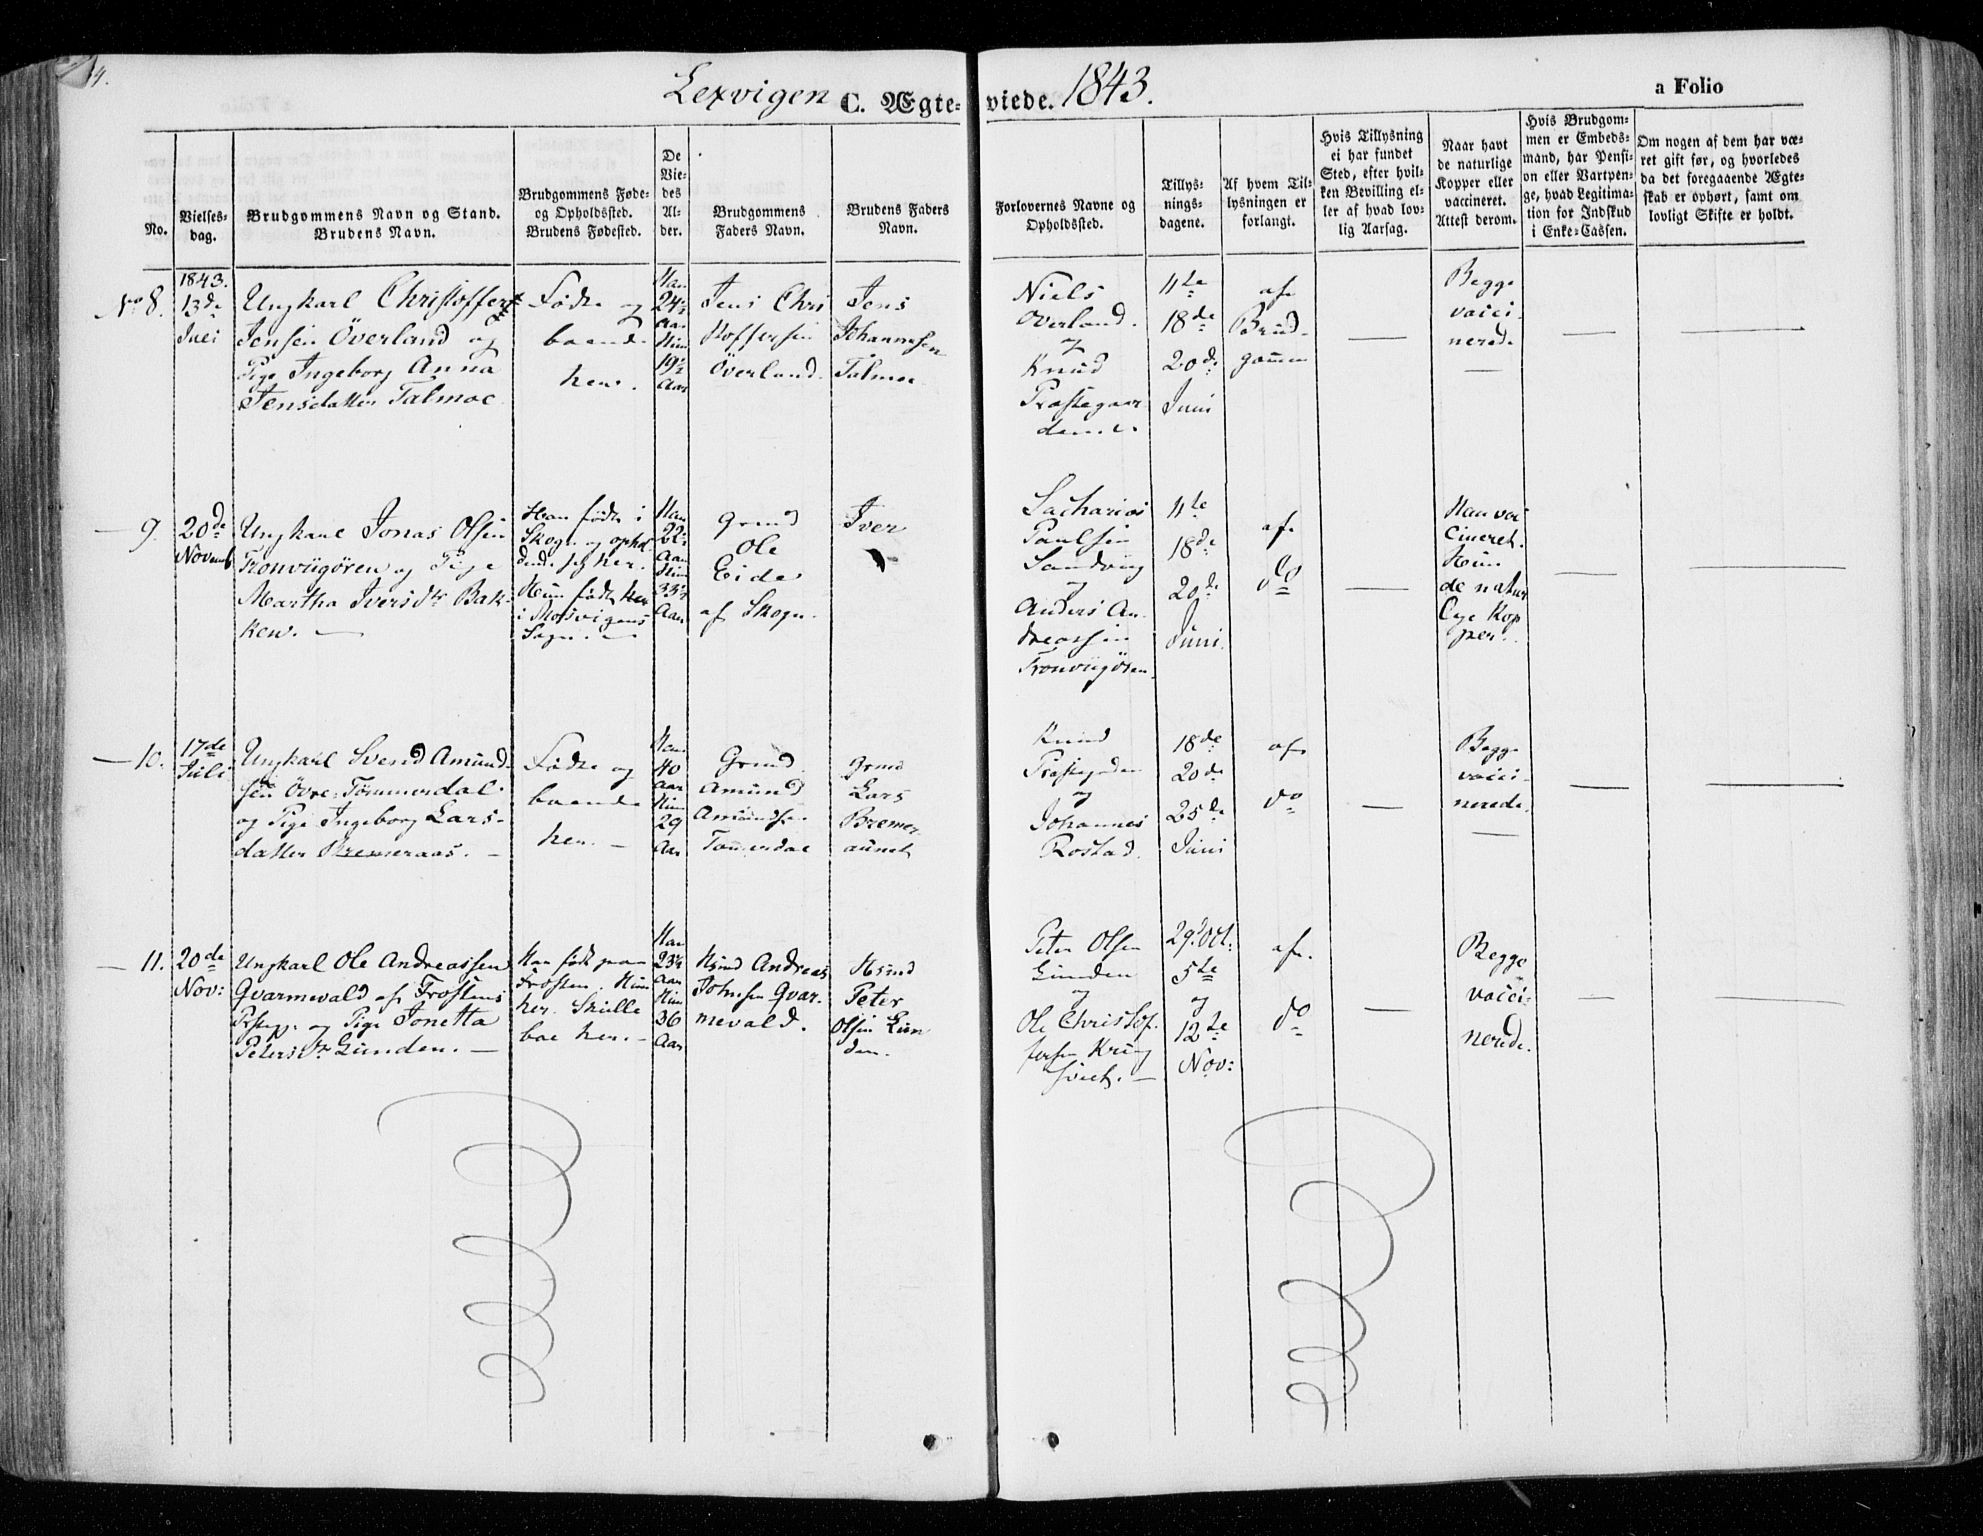 Lexvigen C. Ægte-viede. 1843.
a Folio
No.
Vielses-
dag.
Brudgommens Navn og Stand.
Brudens Navn.
Brudgommens Føde-
og Opholdssted.
Brudens Fødested.
De
Vie-
des
Al-
der.
Brudgommens
Faders Navn.
Brudens Faders
Navn.
Forlovernes Navne og
Opholdssted.
Tillys-
nings-
dagene.
Af hvem Til-
lysningen er
forlangt.
Hvis Tillysning
ei har fundet
Sted, efter hvil-
ken Bevilling el-
ler af hvad lov-
lig Aarsag.
Naar havt
de naturlige
Kopper eller
vaccineret.
Attest derom.
Hvis Brudgom-
men er Embeds-
mand, har Pensi-
on eller Vartpen-
ge, hvad Legitima-
tion for Indskud
i Enke-Cassen.
Om nogen af dem har væ-
ret gift før, og hvorledes
da det foregaaende Ægte-
skab er ophørt, samt om
lovligt Skifte er holdt.
No 8.
1843.
13de
Juli
Ungkarl Christoffer
Jensen Överland og
Pige Ingeborg Anna
Jensdatter Talmoe
Födte og
boende
her.
Han
24½
Aar
Hun
19½
Aar
Jens Chri
stoffersen
Överland.
Jens
Johannesen
Talmoe
Niels
Överland.
og
Knud
Præstegaar
den
11te
18de
20de
Juni
af
Brud-
gommen
Begge
vacci-
nerede
9.
20de
Novemb
Ungkarl Jonas Olsen
Tronviigören og Pige
Martha Iversdtr Bak-
ken.
Han födt i
Skogn og ophol
dende sig her.
Hun födt her
i Mosvigens
Sogn.
Han
22½
Aar
Hun
33½
Aar
Grmd
Ole
Eide
af Skogn.
Iver
Sacharias
Paulsen
Sandvig
og
Anders An-
dreassen
Tronviigören.
11te
18de
20de
Juni
af
do
Han vac
cineret.
Hun
de natur
lige Kop
per.
10.
17de
Juli
Ungkarl Svend Amund-
sen Övre-Tömmerdal
og Pige Ingeborg Lars-
datter Bremeraas.
Födte og
boende
her.
Han
40
Aar
Hun
29
Aar
Grmd
Amund
Amundsen
Tömmerdal
Grmd
Lars
Bremer
aunet
Knud
Præstegrden
og
Johannes
Rostad.
18de
20de
25de
Juni
af
do
Begge
vacci-
nerede.
11.
20de
Nov:
Ungkarl Ole Andreassen
Qvarmevald af Frostens
Præstegj. og Pige Jonetta
Petersdtr Lunden.
Han födt paa
Frosten. Hun
her. Skulle
boe her.
Han
23½
Aar
Hun
36
Aar
Hsmd Andreas
Johnsen Qvar-
mevald.
Hsmd
Peter
Olsen Lun
den.
Peter Olsen
Lunden
og
Ole Christof-
fersen Kring
sviet.
29d Oct:
5te
og
12te
Nov:
af
do
Begge
vacci-
nerede.